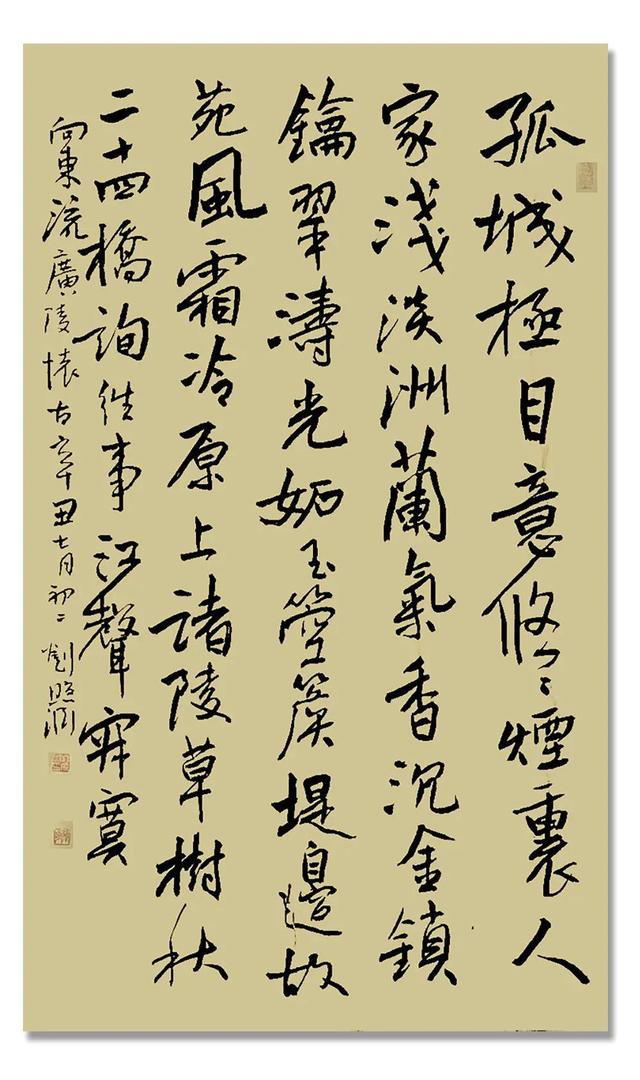 孤城極目意悠〻煙裏人
家淺淡洲蘭氣香沉金鎖
鑰翠濤光妬玉箜篌堤邊故
苑風霜冷原上諸陵草樹秋
二十四橋詢往事江聲寂寞
向東流廣陵懷古辛丑七月初二劉照